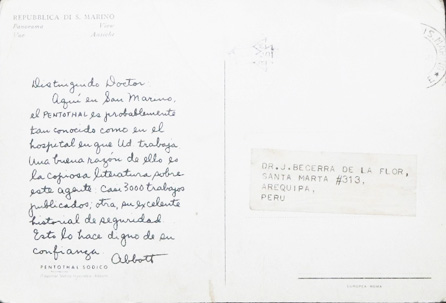 REPUBBLICA DI S. MARINO
Panorama
Vue
Distinguido Doctor
Aquí en San Marino,
el PENTOTHAL es probablemente
tan conocido como en el
hospital en que Ud trabaja
Una buena razón de ello es
la copiosa literatura sobre
este agente. Casi 3000 trabajos
publicados; otra, su excelente
historial de seguridad.
Esto lo hace digno de su
confianza.
Abbott
PENTOTHAL SODICO
DR.J.BECERRA DE LA FLOR,
SANTA MARTA #313,
AREQUIPA,
PERU